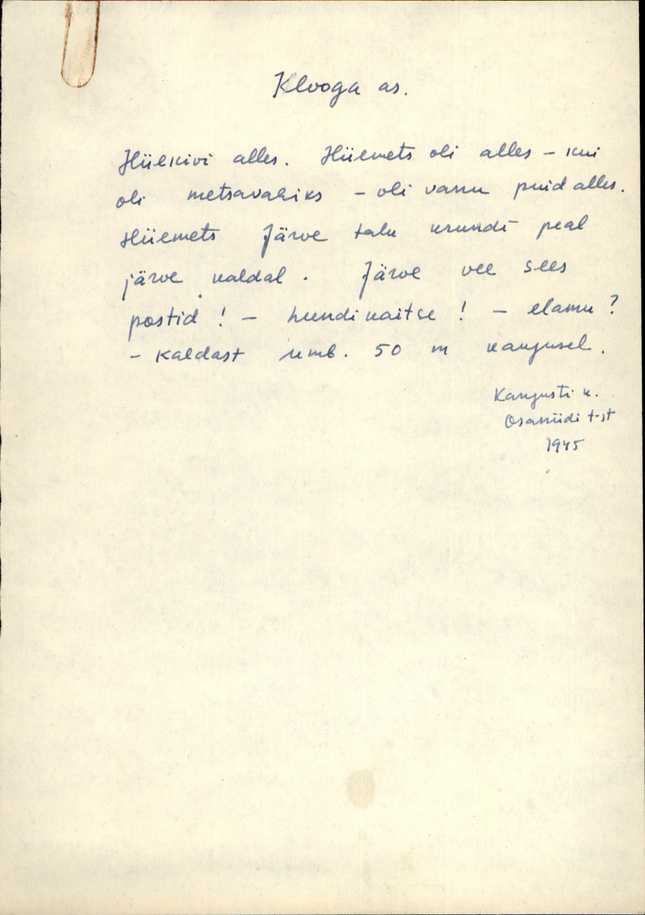 Klooga as.
Hiiekivi alles. Hiiemets oli alles – kui
oli metsavahiks – oli vanu puid alles.
Hiiemets Järve talu krundi peal
järve kaldal. Järve vee sees
postid! – hundikaitse! – elamu?
– kaldast umb. 50 m kaugusel.
k.
t-st
1945